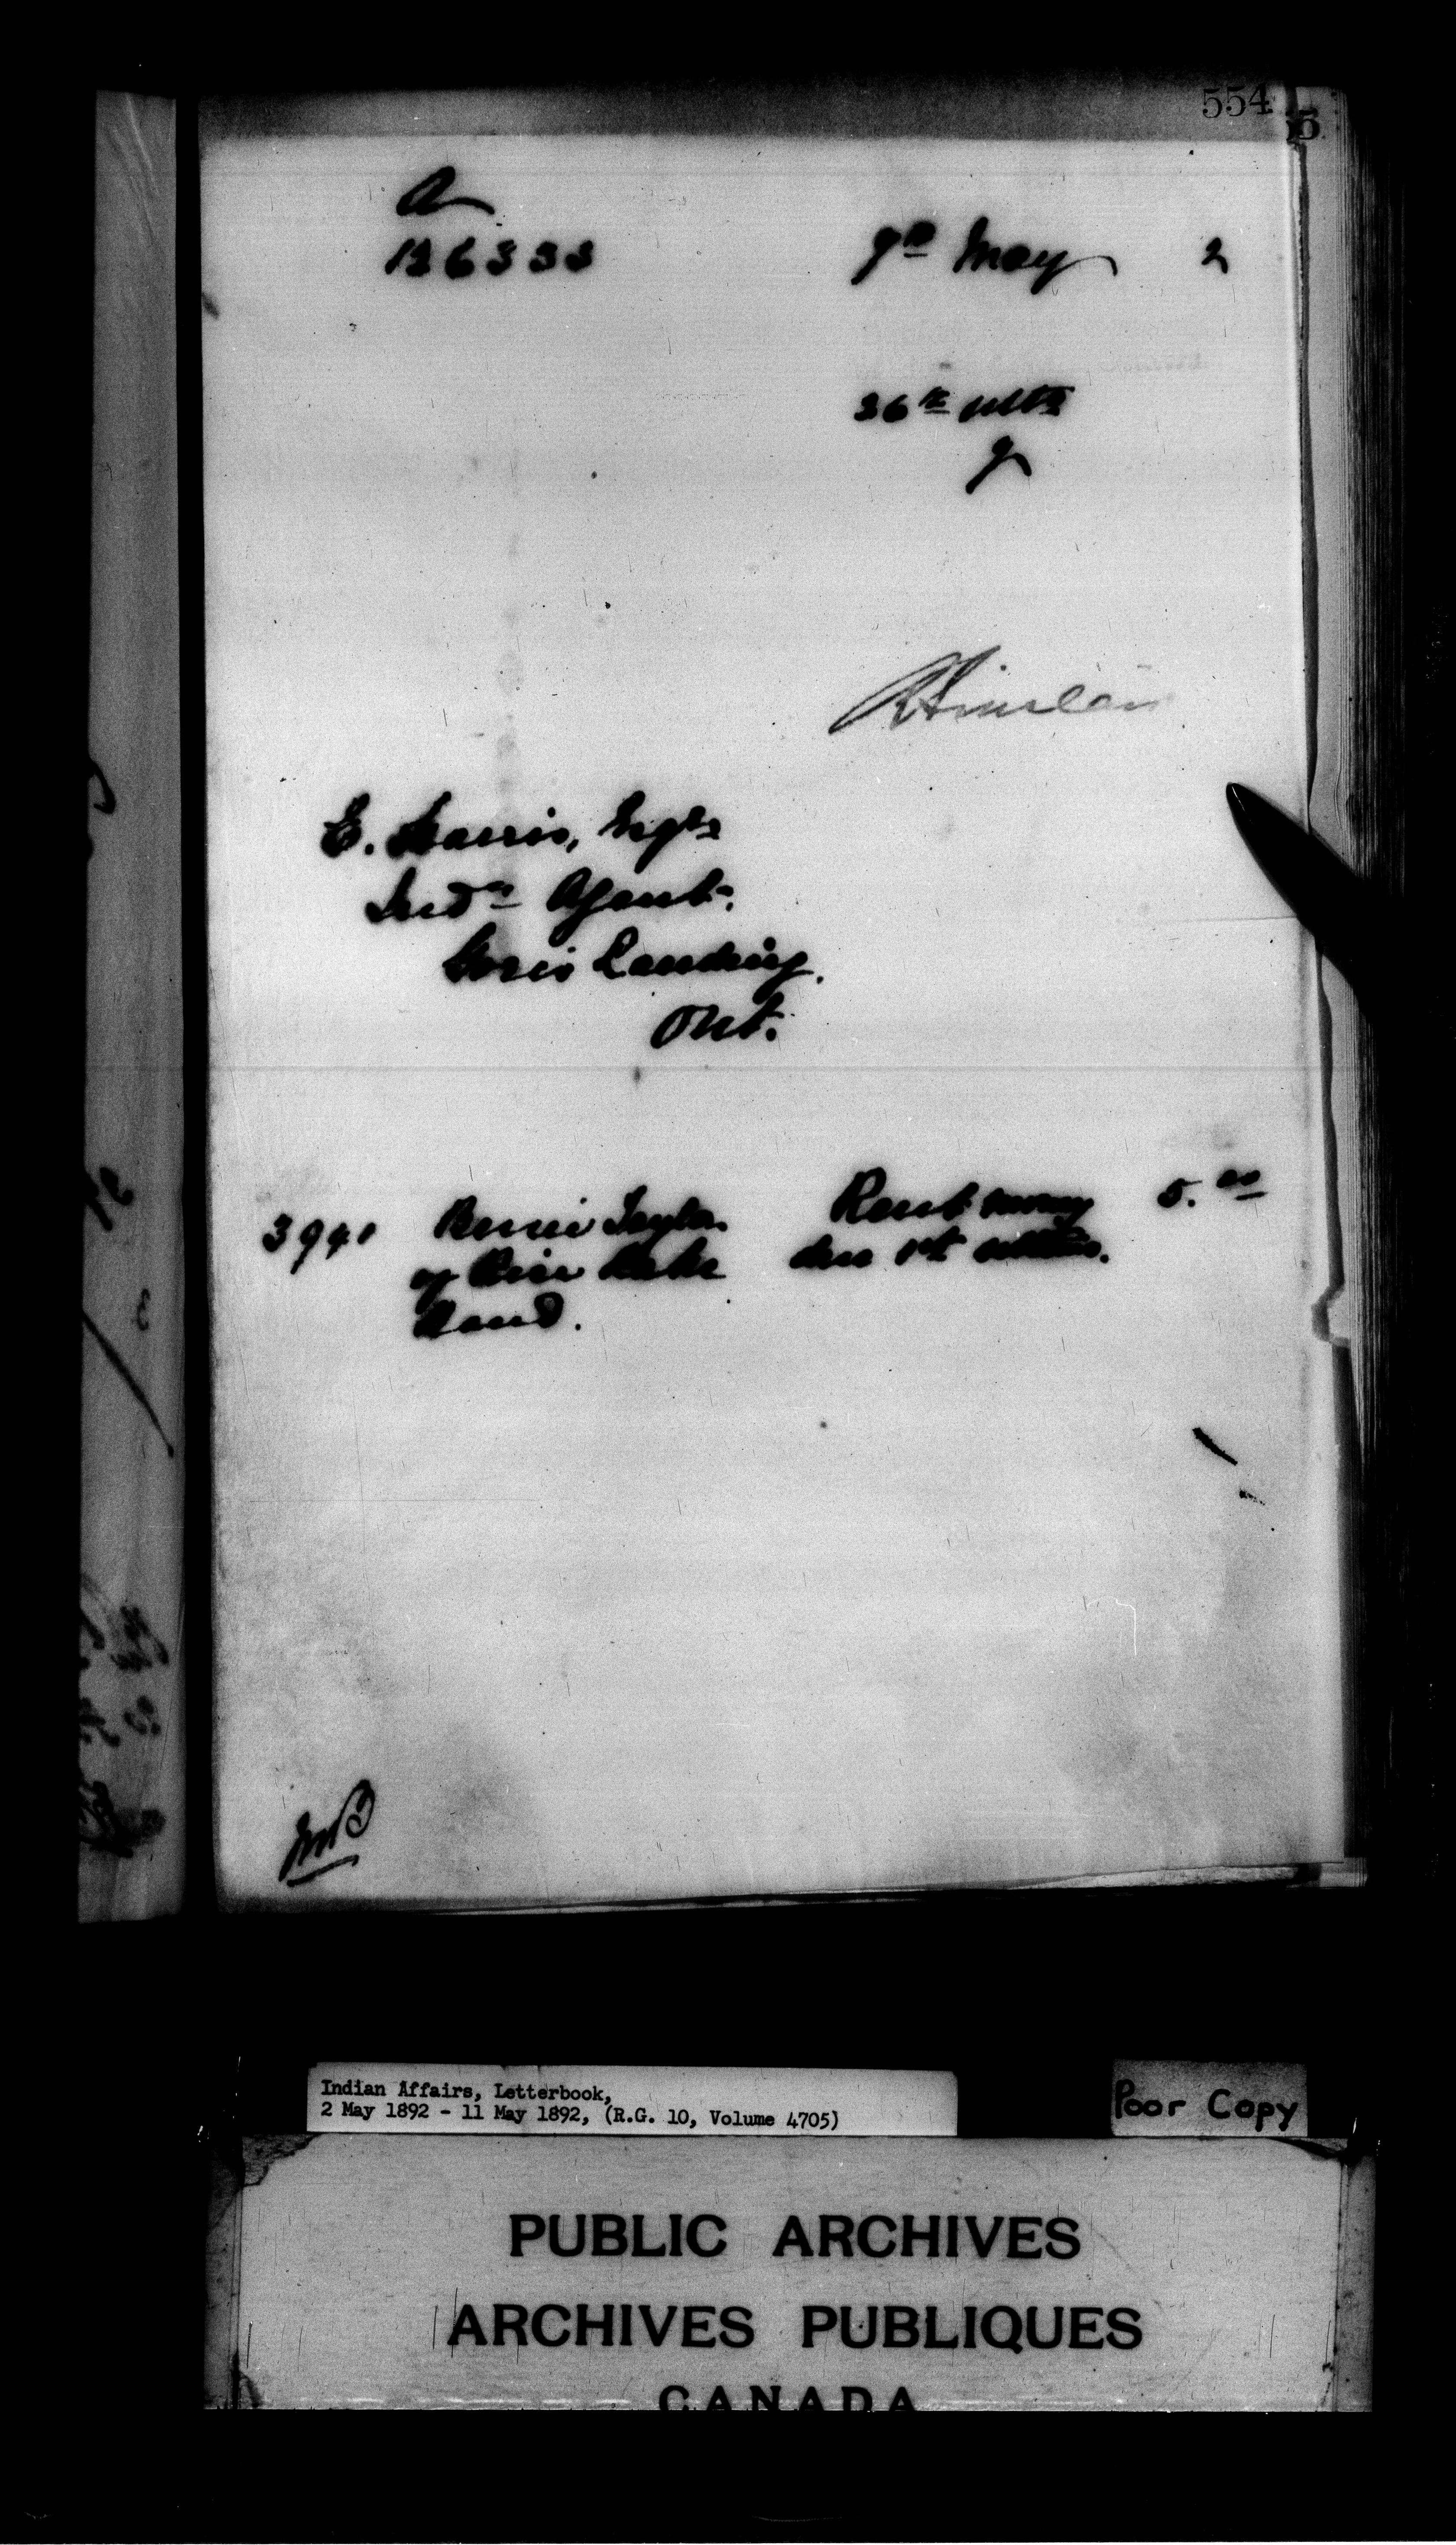 554
55
A
126333
9th May 2
26th ulto
E. Harris, Esqre
Indn Agent.
Gores Landing.
Ont.
Rent money 5.00
of Rice Lake
due 1st
Band.
MB
Indian Affairs, Letterbook,
2 May 1892 - 11 May 1892, (R.G. 10, Volume 4705)
Poor Copy
PUBLIC ARCHIVES
ARCHIVES PUBLIQUES
CANADA